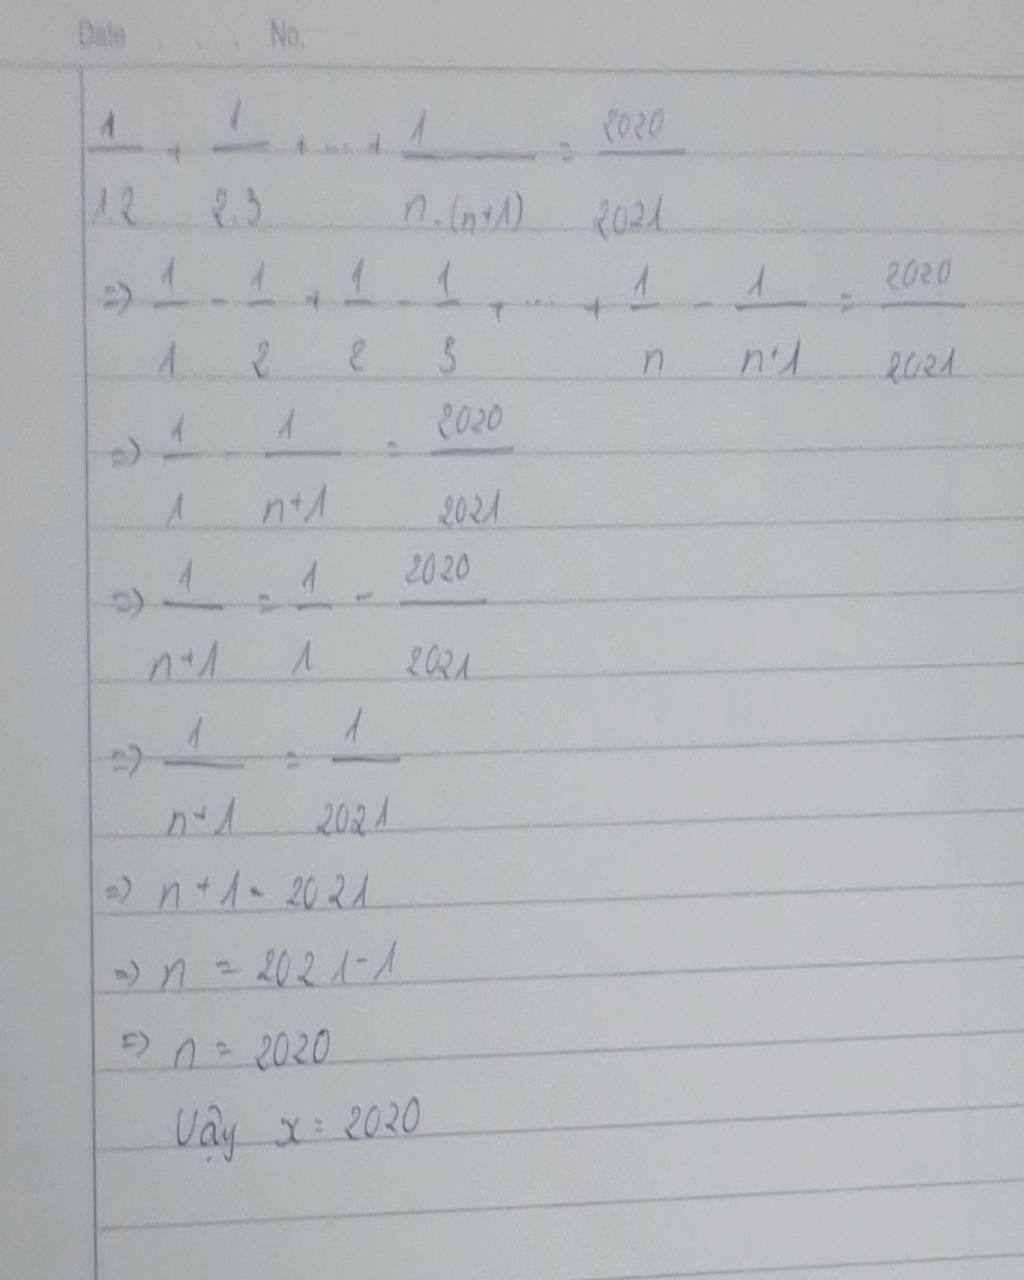 Date . . . No.
1/1.2 + 1/2.3 + ... + 1/n.(n+1) = 2020/2021
=> 1/1 - 1/2 + 1/2 - 1/3 + ... + 1/n - 1/n+1 = 2020/2021
=> 1/1 - 1/n+1 = 2020/2021
=> 1/n+1 = 1/1 - 2020/2021
=> 1/n+1 = 1/2021
=> n+1 = 2021
=> n = 2021-1
=> n = 2020
Vậy x = 2020